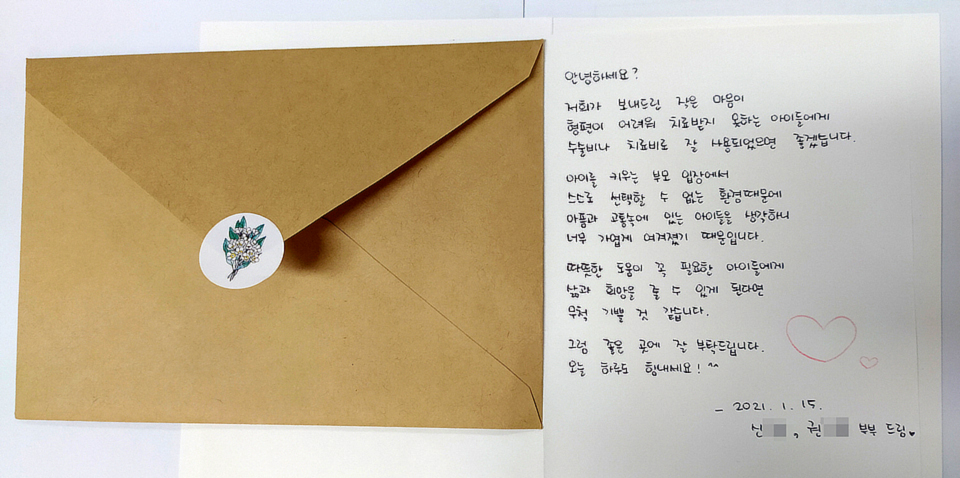 안녕하세요?
저희가 보내드린 작은 마음이
형편이 어려워 치료받지 못하는 아이들에게
수술비나 치료비로 잘 사용되었으면 좋겠습니다.
아이를 키우는 부모 입장에서
스스로 선택할 수 없는 환경때문에
아픔과 고통속에 있는 아이들을 생각하니
너무 가엽게 여겨졌기 때문입니다.
따뜻한 도움이 꼭 필요한 아이들에게
삶과 희망을 줄 수 있게 된다면
무척 기쁠 것 같습니다.
그럼 좋은 곳에 잘 부탁드립니다.
오늘 하루도 힘내세요! ^^
- 2021. 1. 15.
신 , 권 부부 드림♥